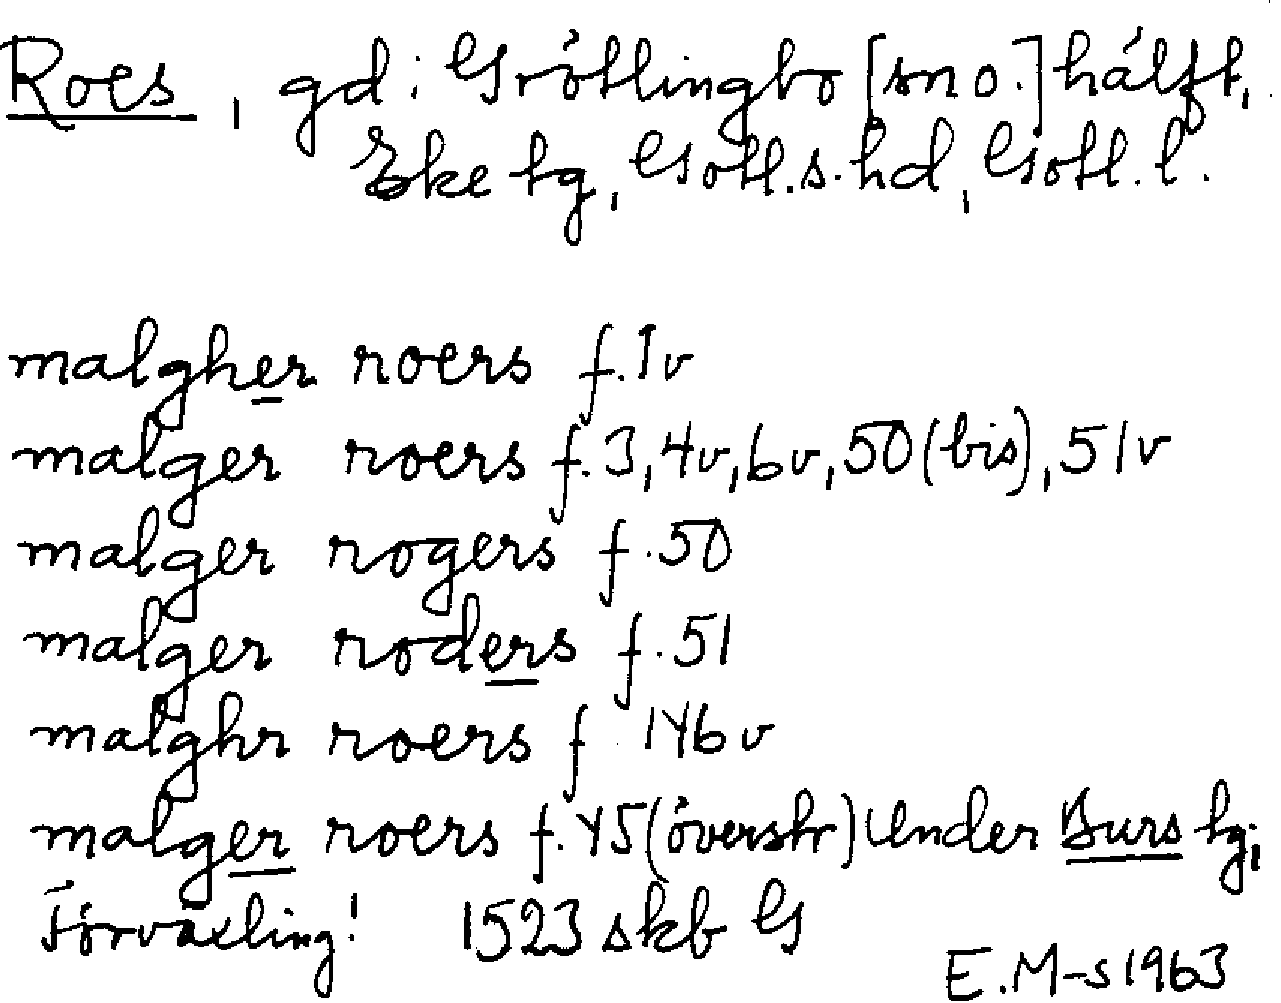 Roes, gd: Grötlingbo [sn o.] hälft,
Eke tg, Gotl.s.hd, Gotl.l.
malgher roers f.1v
malger roers f.3,4v,6v,50(bis),51v
malger rogers f.50
malger roders f.51
malghr roers f 146v
malger roers f.45(överstr) Under Burs tg;
Förväxling! 1523 skb G
E.M-s 1963